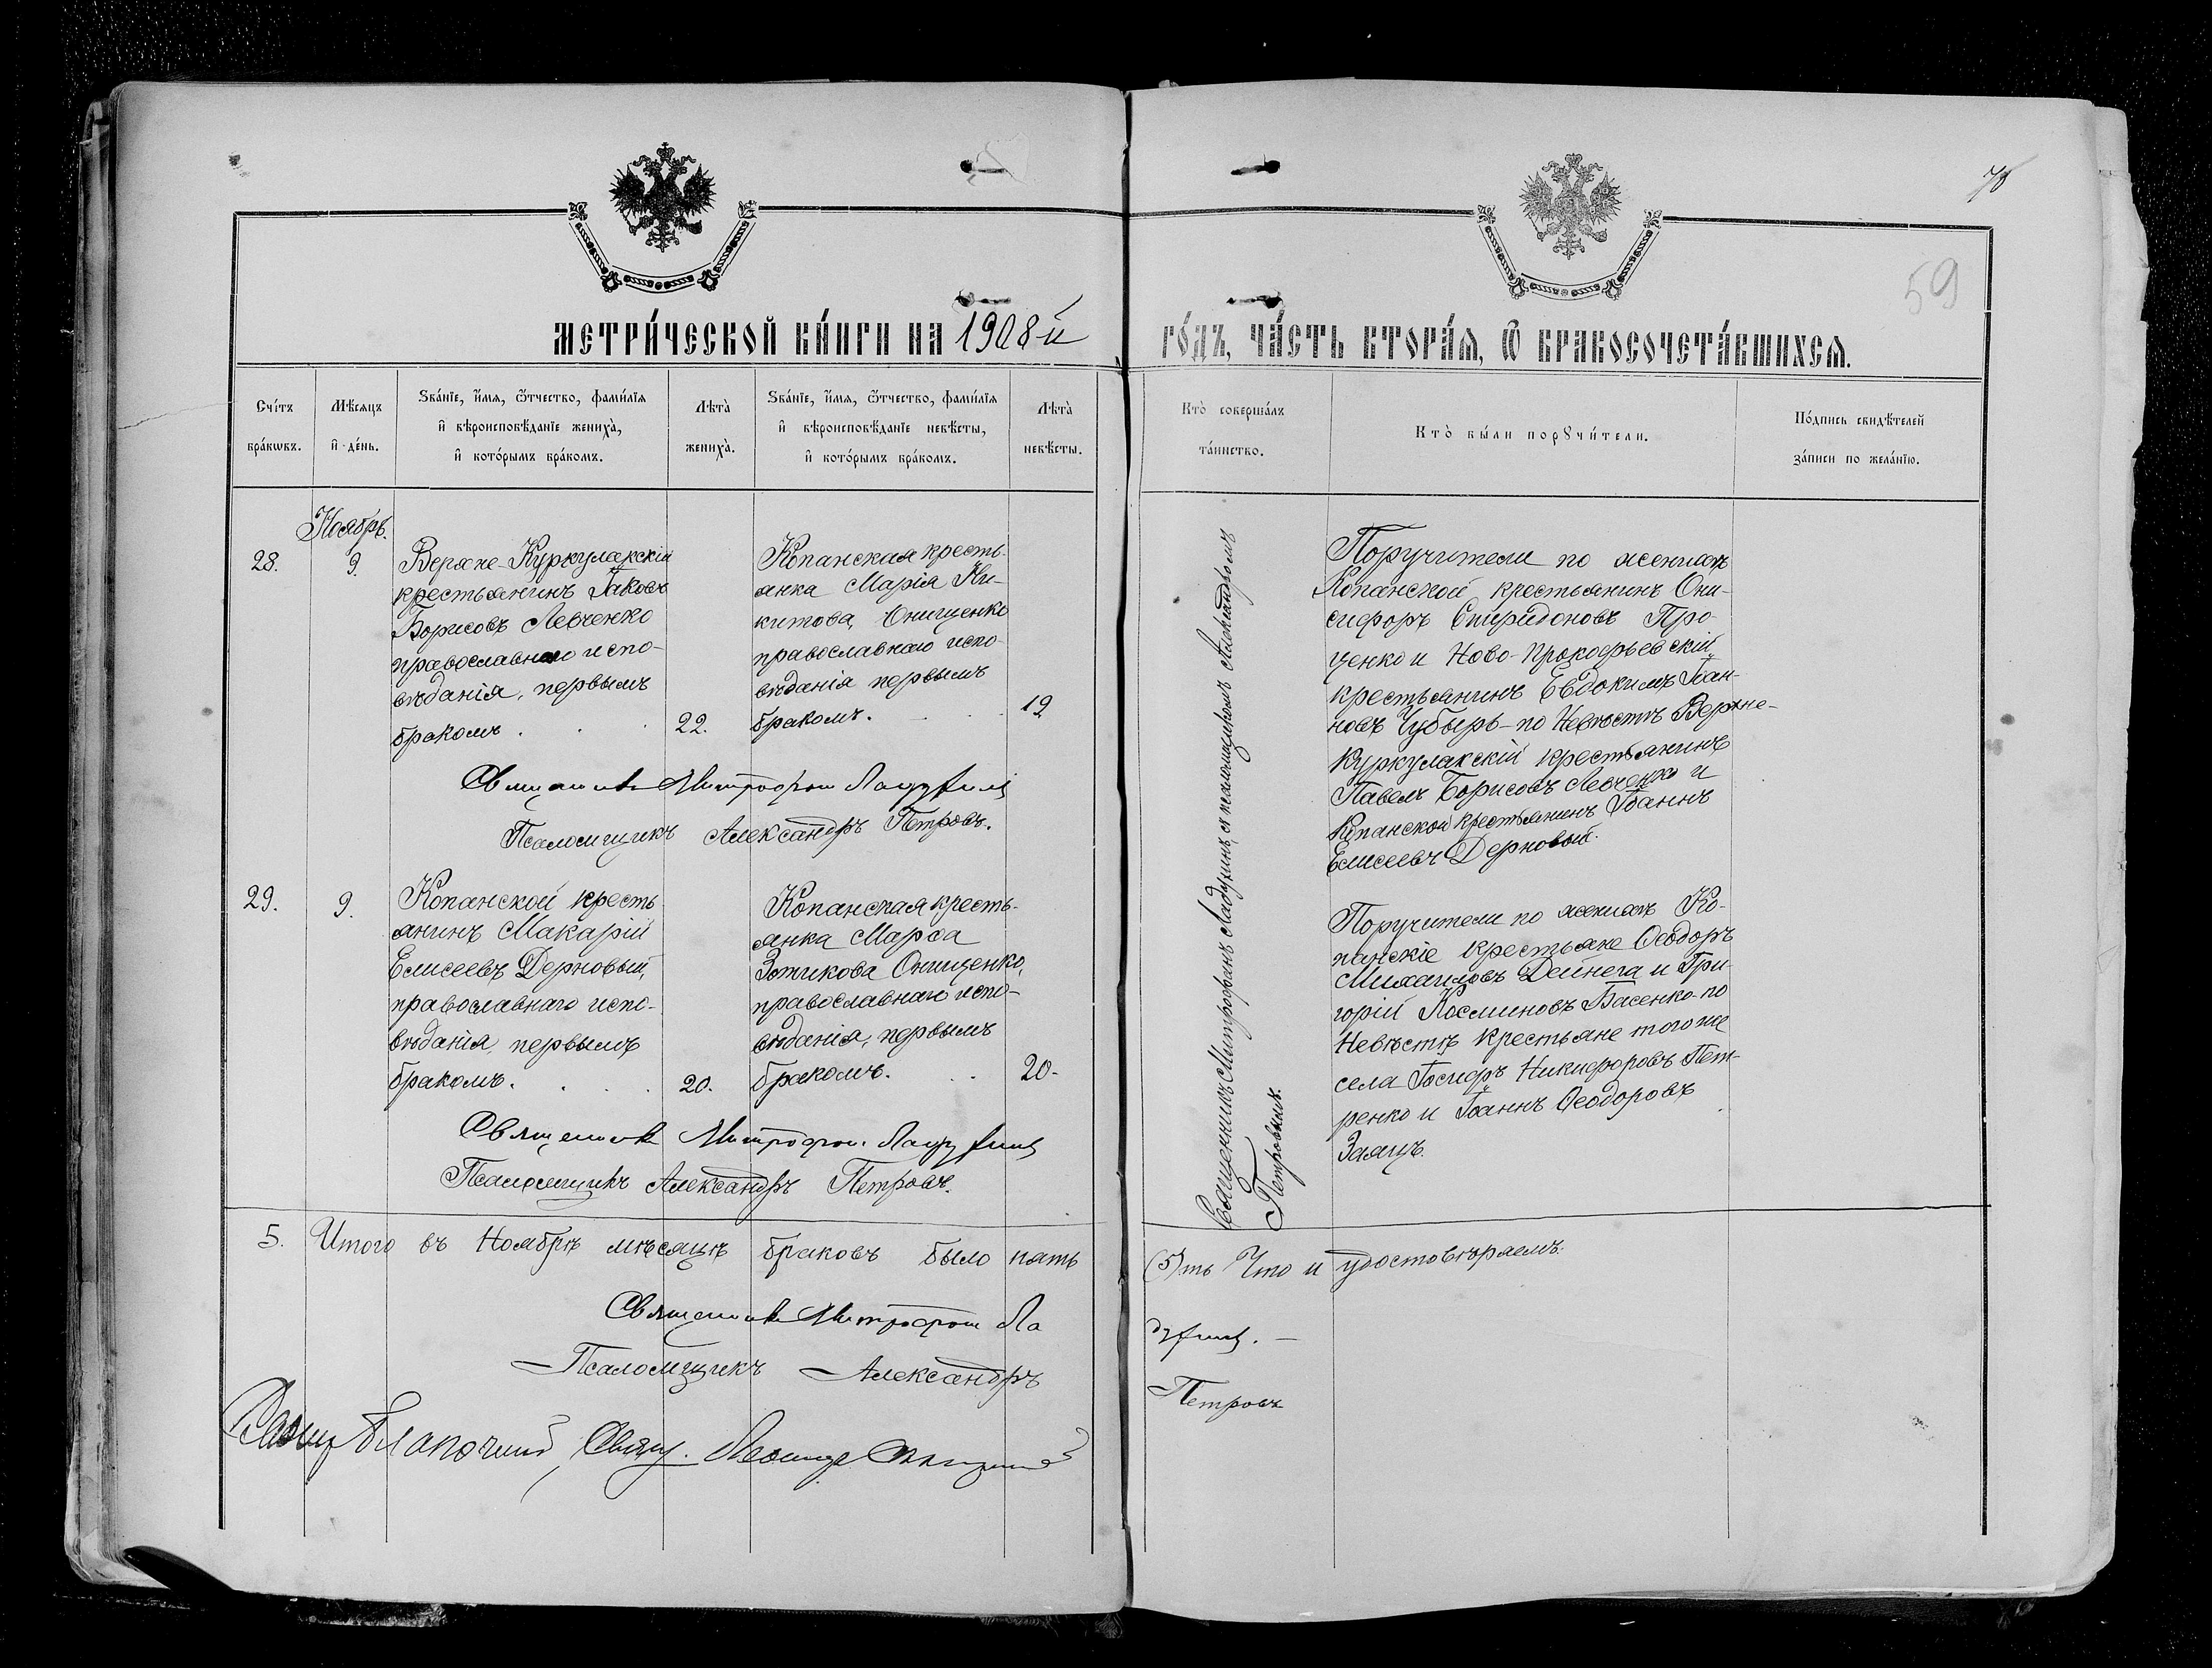 70
59
МЕТРИ́ЧЕСКОЙ КНИ́ГИ НА 1908й
ГО́ДЪ, ЧА́СТЬ ВТОРА́Я, Ѿ БРАКОСОЧЕТА́ВШИХСЯ.
Сче́тъ бра́кѡвъ.
Мѣ́сяцъ и҆ де́нь.
Ѕва́нїе, и҆́мѧ, ѻ҆́тчество, фами́лїѧ
и҆ вѣроисповѣ́данїе жениха̀,
и҆ кото́рымъ бра́комъ.
Лѣ́та жениха̀.
Ѕва́нїе, и҆́мѧ, ѻ҆́тчество, фами́лїѧ
и҆ вѣроисповѣ́данїе невѣ́сты,
и҆ кото́рымъ бра́комъ.
Лѣ́та невѣ́сты.
Кто̀ соверша́лъ
та́инство.
Кто̀ бы́ли порꙋчи́тели.
По́дпись свидѣ́телей
за́писи по жела́нїю.
Ноябрь.
28.
9.
Верхне-Куркулакскій
крестьянинъ Іаковъ
Борисовъ Левченко
православнаго испо-
вѣданія, первымъ
бракомъ . . . 22.
Копанская кресть-
янка Марія Ни-
китова, Онищенко
православнаго испо-
вѣданія первымъ
бракомъ. . . 19
Священникъ Митрофанъ Ладухинъ
Псаломщикъ Александръ Петровъ.
Священникъ Митрофанъ Ладухинъ, съ псаломщикомъ Александромъ
Петровымъ.
Поручители по женихѣ
Копанской крестьянинъ Они-
сифоръ Спиридоновъ Про-
ценко и Ново-Прокофьевскій
крестьянинъ Евдокимъ Іоан-
новъ Чубырь - по Невѣстѣ Верхне-
Куркулакскій крестьянинъ
Павелъ Борисовъ Левченко и
Копанской крестьянинъ Іоаннъ
Елисеевъ Дерновый.
29.
9.
Копанской кресть-
янинъ Макарій
Елисеевъ Дерновый,
православнаго испо-
вѣданія, первымъ
бракомъ. . . . 20.
Копанская кресть-
янка Марѳа
Зотикова Онищенко,
православнаго испо-
вѣданія, первымъ
бракомъ. . . 20-
Священникъ Митрофанъ Ладухинъ
Псаломщикъ Александръ Петровъ.
Поручители по женихѣ Ко-
панскіе крестьяне Ѳеодоръ
Михаиловъ Дейнега и Гри-
горій Косминовъ Басенко - по
Невѣстѣ крестьяне того же
села Іосифъ Никифоровъ Пет-
ренко и Іоаннъ Ѳеодоровъ
Заяцъ.
5. Итого въ Ноябрѣ мѣсяцѣ браковъ было пять (5)ть Что и удостовѣряемъ:
Священникъ Митрофанъ Ладухинъ. -
Псаломщикъ Александръ Петровъ
Благочинный, Свящ. Леонидъ